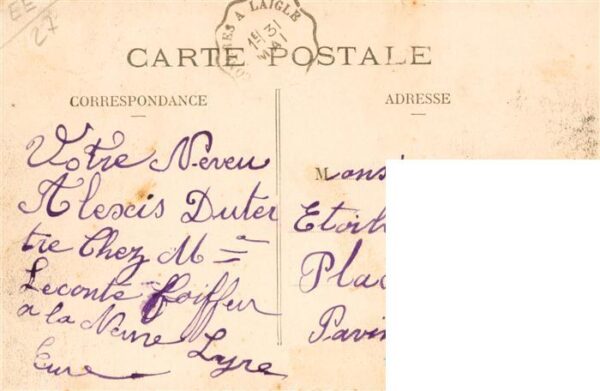 EE
27
ES A LAIGLE
1º 31
MAI
CARTE POSTALE
CORRESPONDANCE
ADRESSE
Votre Neveu
Alexis Duter
tre Chez M
Leconte Coiffeur
a la Neuve Lyre
Eure
Mons
Etoil
Plac
Pavi